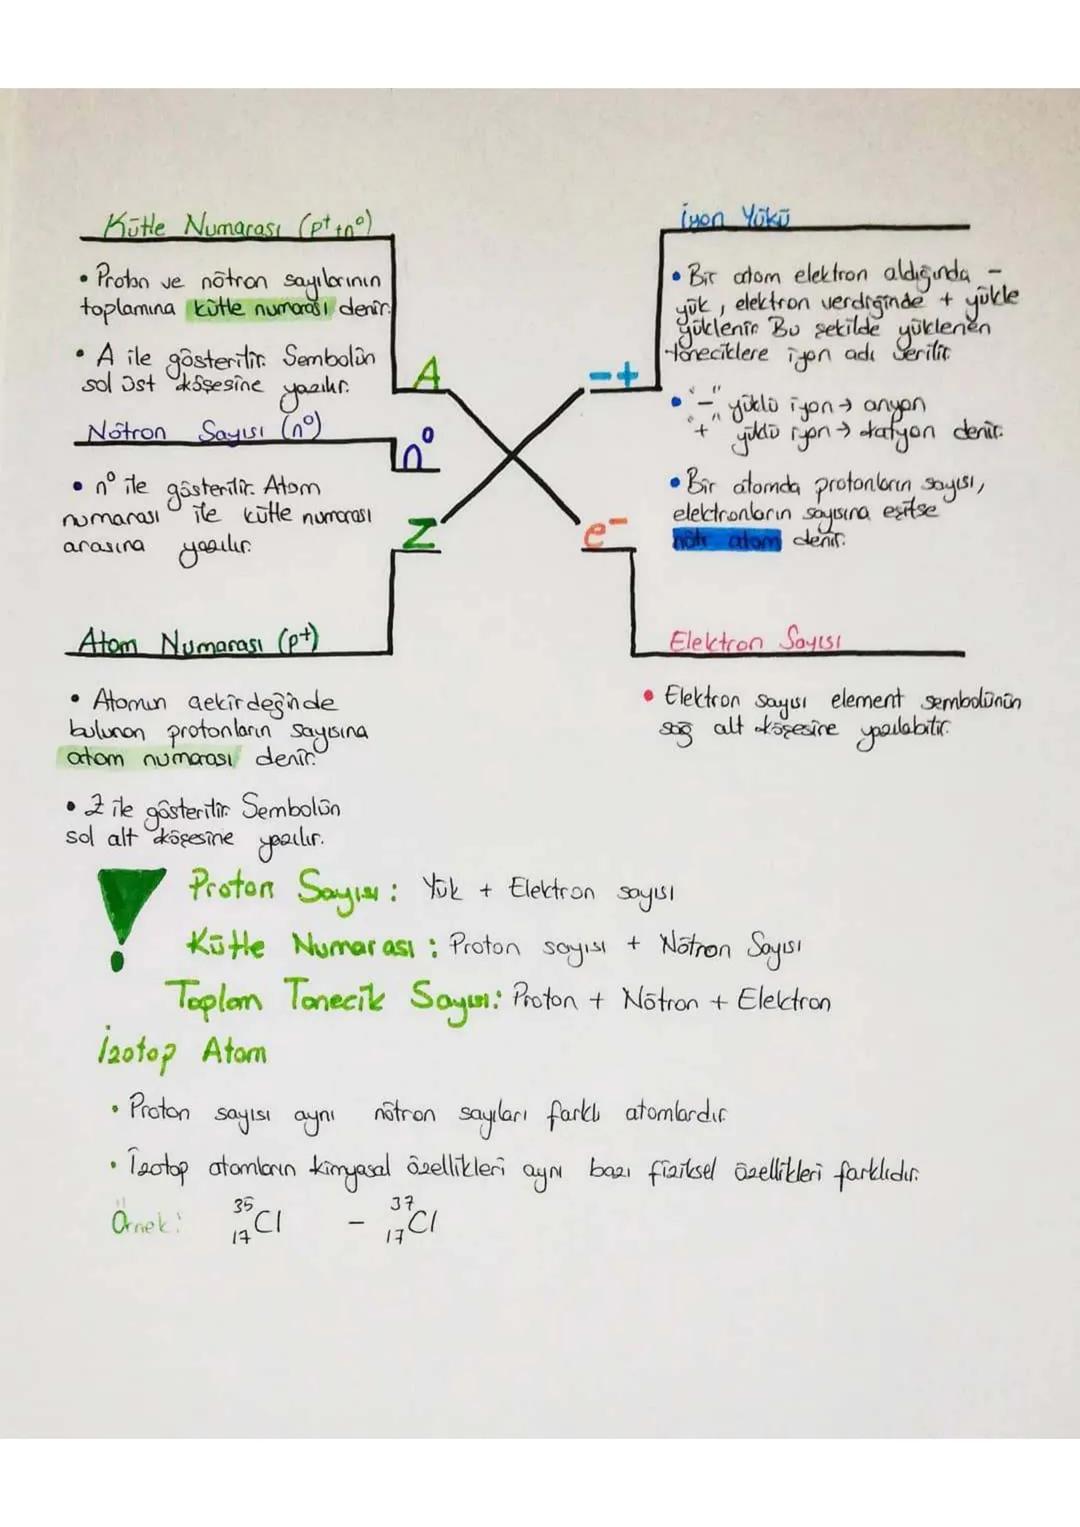 Kütle Numarası (p⁺+n⁰)
• Proton ve nötron sayılarının
toplamına kütle numarası denir.
• A ile gösterilir. Sembolün
sol üst köşesine yazılır.
A
Nötron Sayısı (n⁰)
n⁰
• n⁰ ile gösterilir. Atom
numarası ile kütle numarası
arasına yazılır.
Z
Atom Numarası (p+)
• Atomun çekirdeğinde
bulunan protonların sayısına
atom numarası denir.
• Z ile gösterilir. Sembolün
sol alt köşesine yazılır.
İyon Yükü
• Bir atom elektron aldığında -
yük, elektron verdiğinde + yükle
yüklenir. Bu şekilde yüklenen
taneciklere iyon adı verilir.
-+
• "-" yüklü iyon → anyon
"+" yüklü iyon → katyon denir.
• Bir atomda protonların sayısı,
elektronların sayısına eşitse
nötr atom denir.
e⁻
Elektron Sayısı
• Elektron sayısı element sembolünün
sağ alt köşesine yazılabilir.
! Proton Sayısı: Yük + Elektron sayısı
Kütle Numarası: Proton sayısı + Nötron Sayısı
Toplam Tanecik Sayısı: Proton + Nötron + Elektron
İzotop Atom
• Proton sayısı aynı nötron sayıları farklı atomlardır.
• İzotop atomların kimyasal özellikleri aynı bazı fiziksel özellikleri farklıdır.
Örnek: ³⁵₁₇Cl - ³⁷₁₇Cl